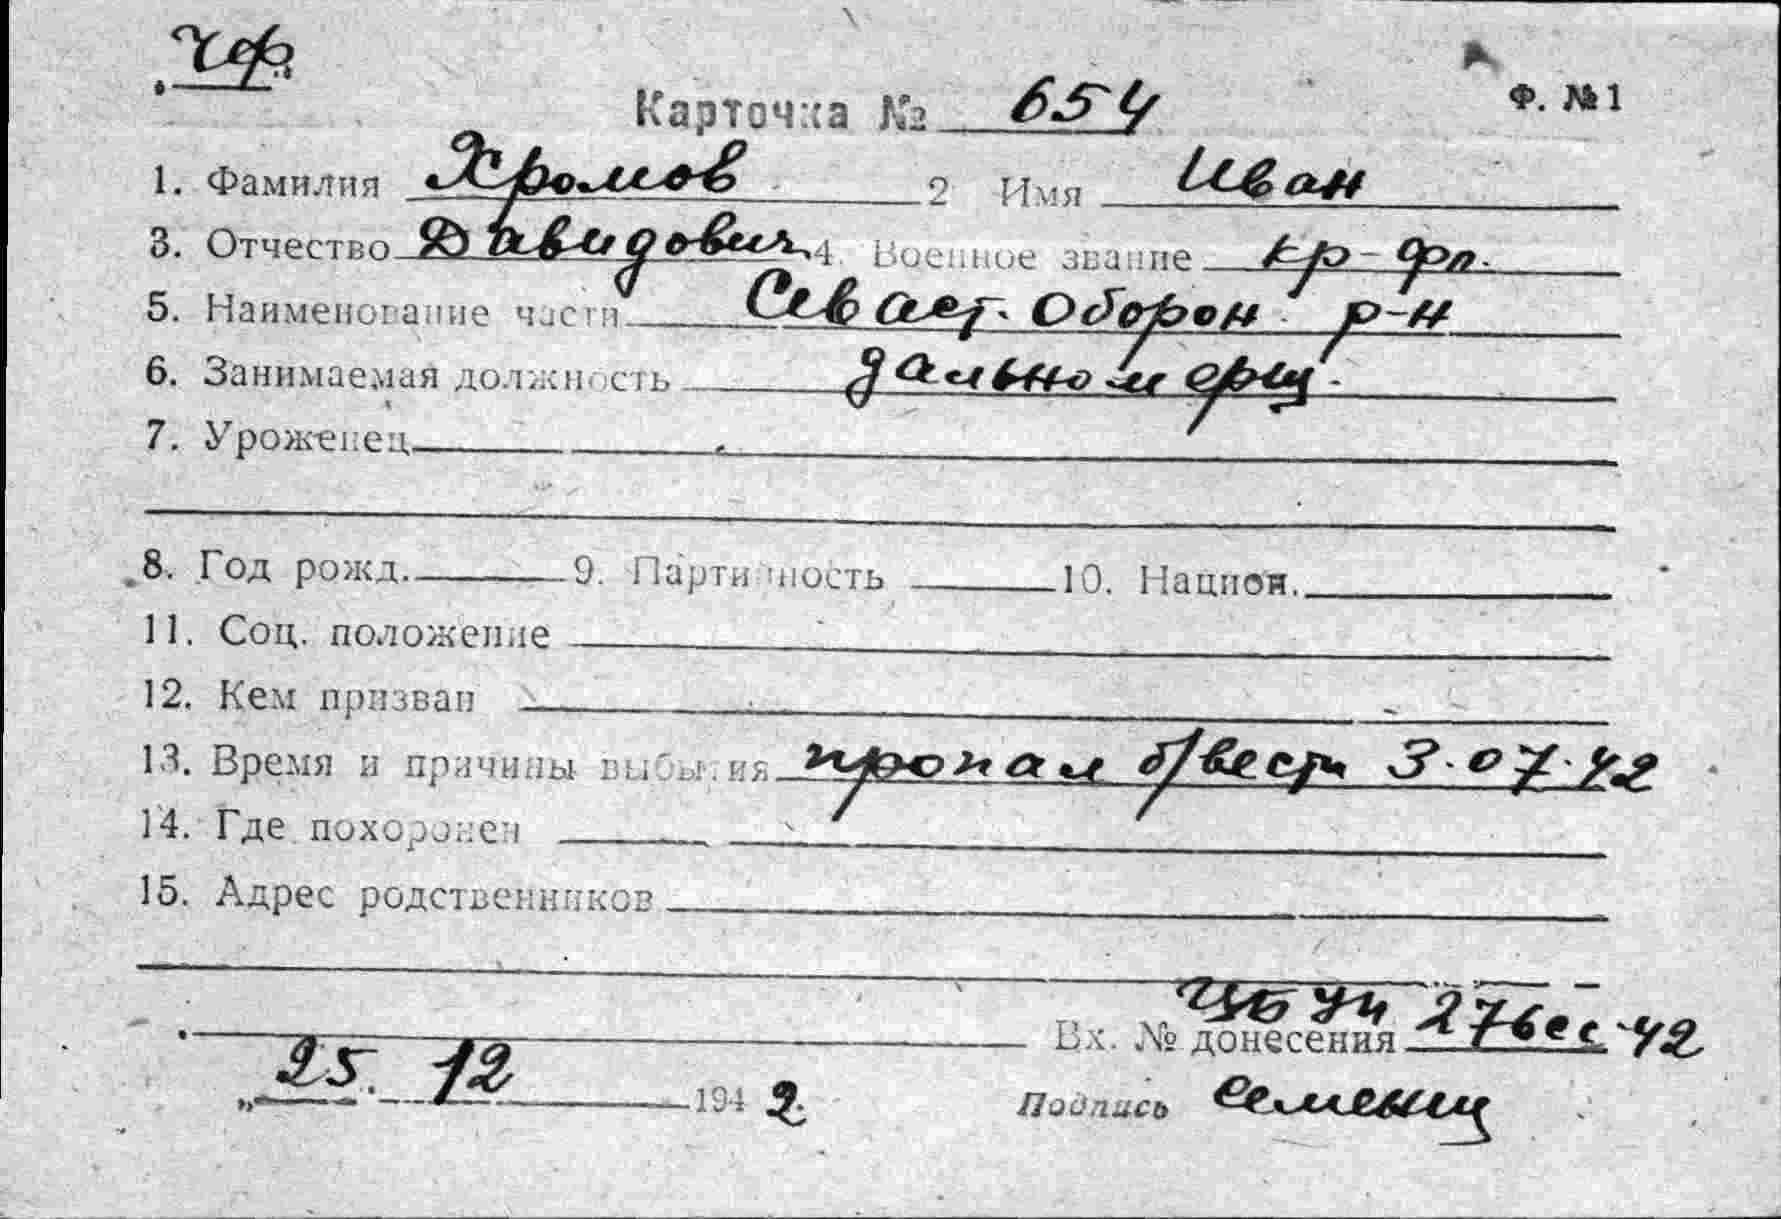 Чф.
Карточка № 654 Ф. №1
1. Фамилия Хромов 2 Имя Иван
3. Отчество Давидович 4. Военное звание кр-фл.
5. Наименование части Севаст. Оборон. р-н
6. Занимаемая должность дальномерщ.
7. Уроженец
8. Год рожд. 9. Партийность 10. Национ.
11. Соц. положение
12. Кем призван
13. Время и причины выбытия пропал б/вести 3.07.42
14. Где похоронен
15. Адрес родственников
Вх. № донесения 276сс-42
„25. 12 1942 Подпись